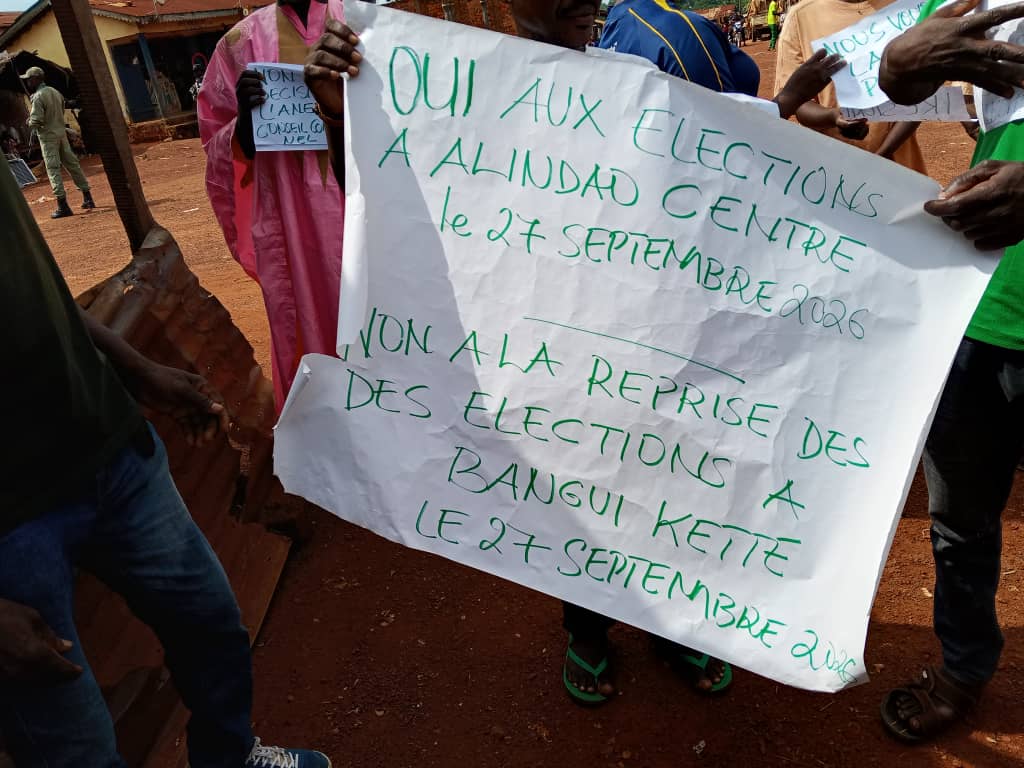 OUI AUX ELECTIONS
A ALINDAO CENTRE
le 27 SEPTEMBRE 2026
NON A LA REPRISE DES
DES ELECTIONS A
BANGUI KETTE
LE 27 SEPTEMBRE 2026
NON
DECIS
L'ANE
CONSEIL CON
NEL
NOUS VOU
LA